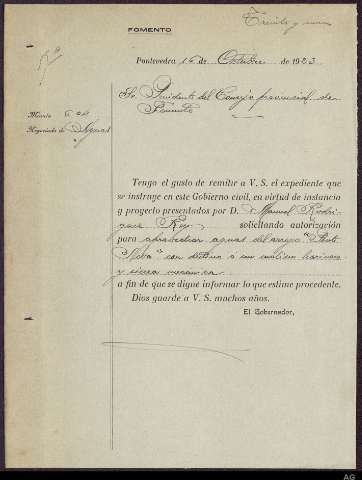 Treinta y uno
FOMENTO
Pontevedra 16 de Octubre de 1923
Sr. Presidente del Consejo provincial de
Fomento
Minuta
Negociado de Aguas
Tengo el gusto de remitir a V. S. el expediente que
se instruye en este Gobierno civil, en virtud de instancia
y proyecto presentados por D. Manuel Rodrí-
guez Rey solicitando autorización
para aprovechar aguas del arroyo
con destino a un molino harinero
y sierra mecánica
a fin de que se digne informar lo que estime procedente.
Dios guarde a V. S. muchos años.
El Gobernador,
AG